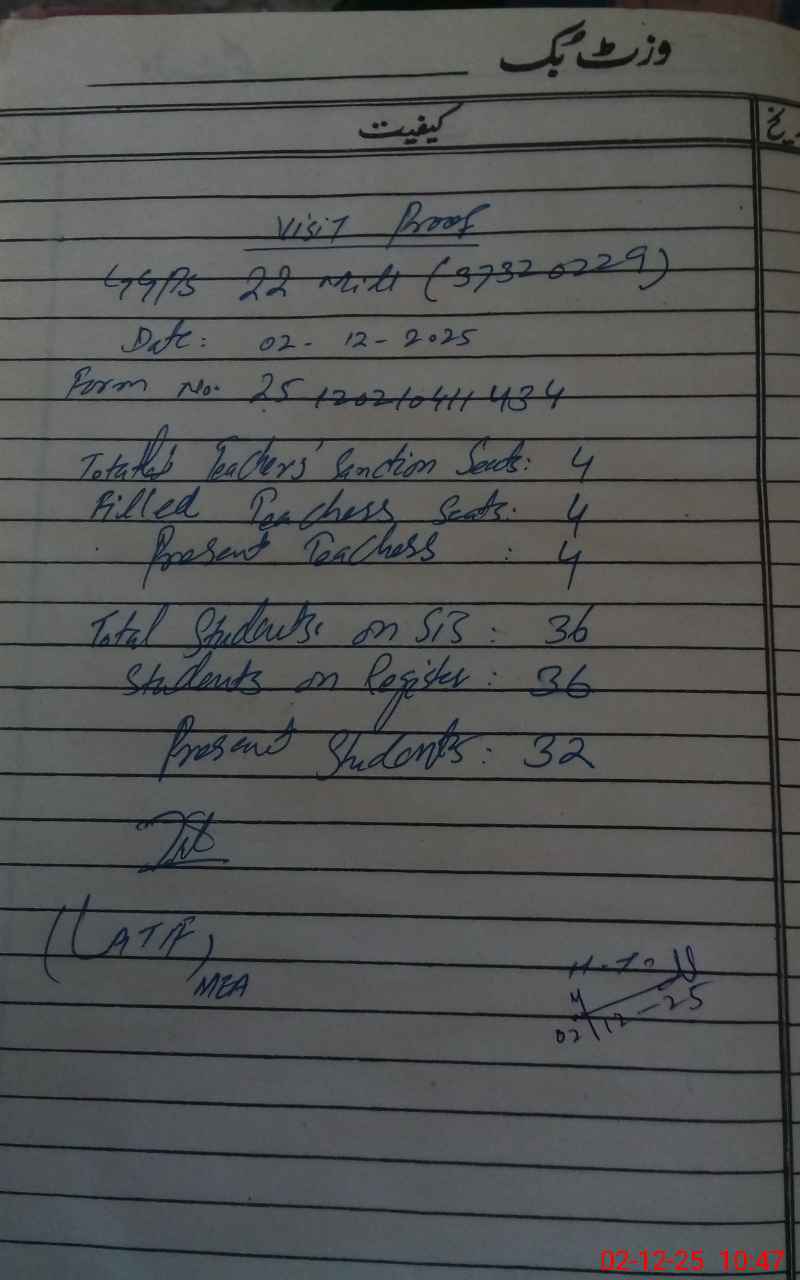 وزٹ بک
کیفیت
Visit Proof
GGPS 22 Mile (37320229)
Date: 02-12-2025
Form No. 25 120210411434
Teachers' Sanction Seats: 4
Filled Teachers Seats: 4
Present Teachers : 4
Total Students on SIS: 36
Students on Register: 36
Present Students: 32
(LATIF)
MEA
02/12-25
02-12-25 10:47